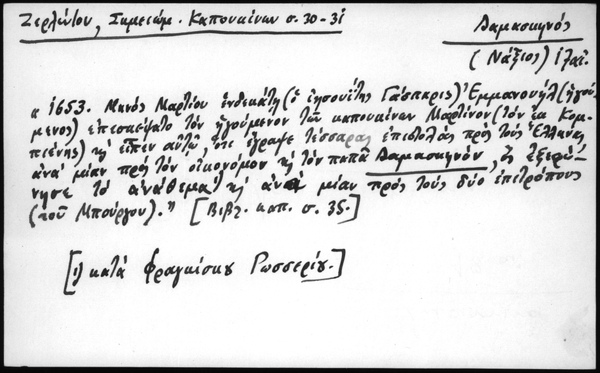 Ζερλέντου, Σημειώμ. Καπουκίνων σ. 30-31
Δαμασκηνός
(Νάξιος) ἱλαῖ.
"1653. Μηνός Μαρτίου ἑνδεκάτῃ (ὁ ἐησουΐτης Γάσπαρις) Ἐμμανουήλ (ἡγού-
μενος) ἐπεσκέψατο τὸν ἡγούμενον τῶν καπουκίνων Μαρτῖνον (τὸν ἐκ Κομ-
πιένης) κ̓ εἶπεν αὐτῷ, ὅτι ἔγραψε τέσσαρας ἐπιστολὰς πρὸς τοὺς Ἕλληνας
ἀνὰ μίαν πρὸς τὸν οἰκονόμον κ̓ τὸν παπᾶ Δαμασκηνόν, ὃς ἐξεφώ-
νησε τὸ ἀνάθεμα, κ̓ ἀνὰ μίαν πρὸς τοὺς δύο ἐπιτρόπους
(τοῦ Μπούργου)." [Βιβλ. καπ. σ. 35.]
[1) κατὰ Φραγκίσκου Ρωσσερίγ.]